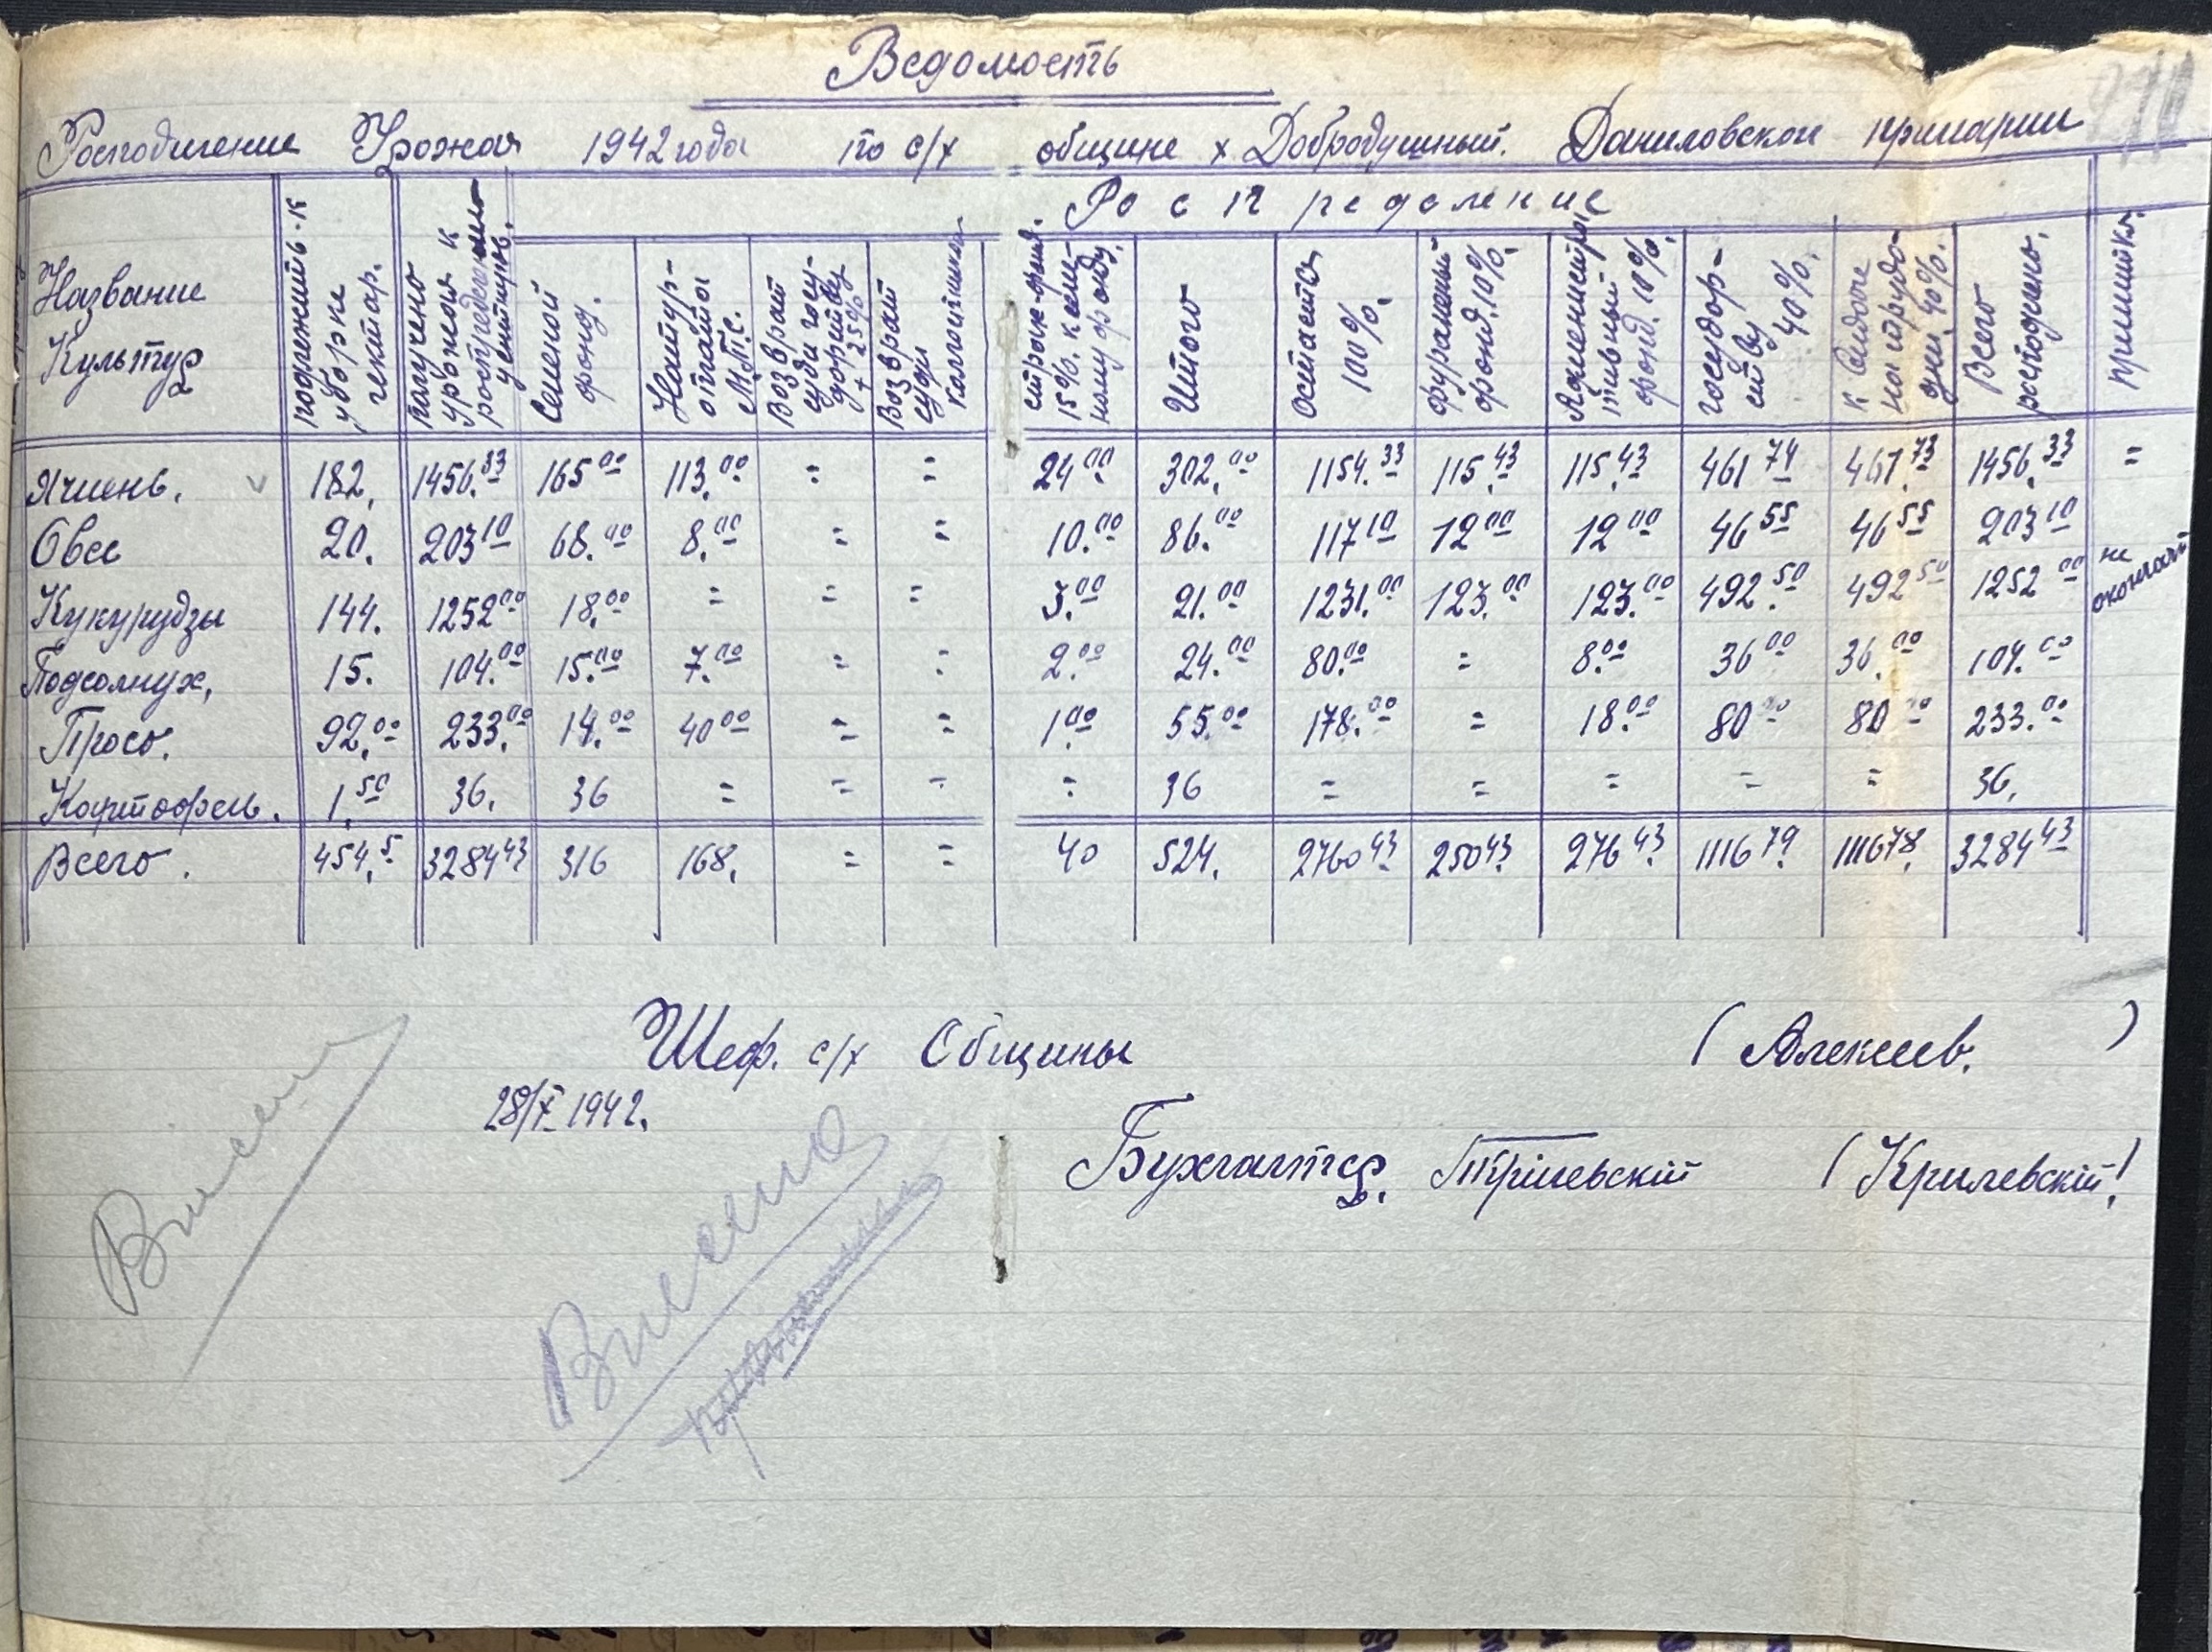 Ведомость
Росподиление Урожая 1942 года по с/х общине х Добродушный. Даниловской примарии
Роспределение
Название Культур
подлежить к уборке гектар.
палучено урожоя к роспределению центнеров.
Семеной фонд.
Натур-оплата М.Т.С.
Возврат суди госу-дорству + 25%
Возврат суди
страх-фонд. 15% к семе-ному фонду.
Итого
Остаето 100%.
фуражный фонд. 10%.
Админестра тивный фонд. 10%.
государ-ству 40%.
к выдоче на трудо-дни. 40%.
Всего
Ячмень. 182. 1456.33 165 00 113.00 = = 24 00 302.00 1154.33 115.43 115.43 461 74 461.73 1456.33 =
Овес 20. 203 10 68.00 8.00 = = 10.00 86.00 117 10 12 00 12 00 46 55 46 55 203 10
Кукурудзы 144. 1252 00 18.00 = = = 3.00 21.00 1231.00 123.00 123.00 492.50 492 50 1252 00 не
Подсолнух, 15. 104.00 15.00 7.00 = = 2.00 24.00 80.00 = 8.00 36 00 36.00 104.00
Просо. 92.00 233.00 14.00 40 00 = = 1.00 55.00 178.00 = 18.00 80 00 80 00 233.00
Картофель. 1.50 36. 36 = = = = 36 = = = = = 36.
Всего. 454.5 3284 43 316 168. = = 40 524. 2760 43 250 43 276 43 1116 79 1116 78 3284 43
Шеф. с/х Общины (Алексеев.)
28/X 1942.
Бухгалтер. (Крилевский!